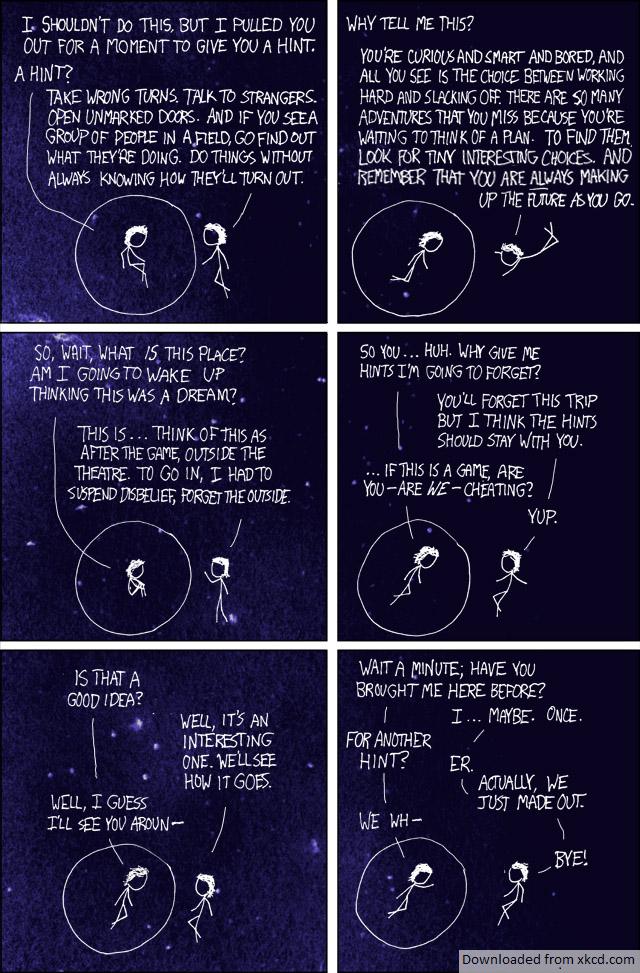 I SHOULDN'T DO THIS, BUT I PULLED YOU
OUT FOR A MOMENT TO GIVE YOU A HINT.
A HINT?
TAKE WRONG TURNS. TALK TO STRANGERS.
OPEN UNMARKED DOORS. AND IF YOU SEE A
GROUP OF PEOPLE IN A FIELD, GO FIND OUT
WHAT THEY'RE DOING. DO THINGS WITHOUT
ALWAYS KNOWING HOW THEY'LL TURN OUT.
WHY TELL ME THIS?
YOU'RE CURIOUS AND SMART AND BORED, AND
ALL YOU SEE IS THE CHOICE BETWEEN WORKING
HARD AND SLACKING OFF. THERE ARE SO MANY
ADVENTURES THAT YOU MISS BECAUSE YOU'RE
WAITING TO THINK OF A PLAN. TO FIND THEM,
LOOK FOR TINY INTERESTING CHOICES. AND
REMEMBER THAT YOU ARE ALWAYS MAKING
UP THE FUTURE AS YOU GO.
SO, WAIT, WHAT IS THIS PLACE?
AM I GOING TO WAKE UP
THINKING THIS WAS A DREAM?
THIS IS... THINK OF THIS AS
AFTER THE GAME, OUTSIDE THE
THEATRE. TO GO IN, I HAD TO
SUSPEND DISBELIEF, FORGET THE OUTSIDE.
SO YOU... HUH. WHY GIVE ME
HINTS I'M GOING TO FORGET?
YOU'LL FORGET THIS TRIP
BUT I THINK THE HINTS
SHOULD STAY WITH YOU.
...IF THIS IS A GAME, ARE
YOU—ARE WE—CHEATING?
YUP.
IS THAT A
GOOD IDEA?
WELL, IT'S AN
INTERESTING
ONE. WE'LL SEE
HOW IT GOES.
WELL, I GUESS
I'LL SEE YOU AROUN—
WAIT A MINUTE; HAVE YOU
BROUGHT ME HERE BEFORE?
I... MAYBE. ONCE.
FOR ANOTHER
HINT?
ER.
ACTUALLY, WE
JUST MADE OUT.
WE WH—
BYE!
Downloaded from xkcd.com